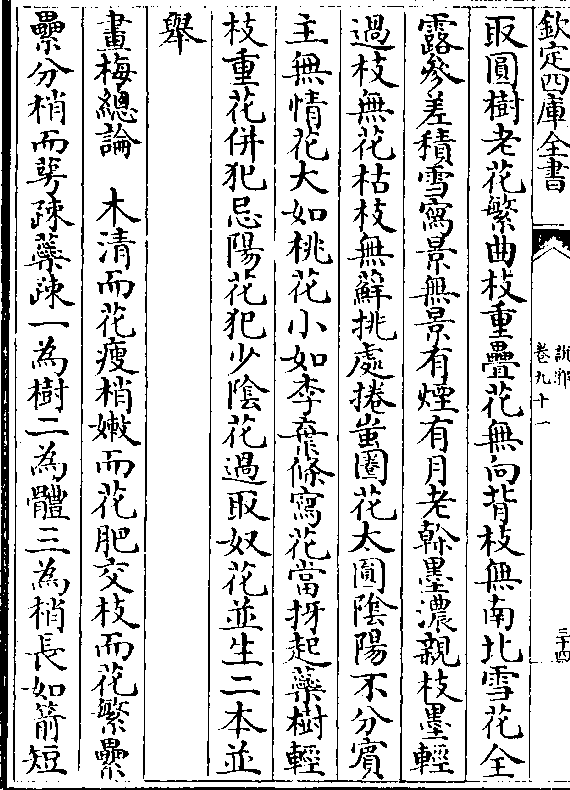 欽定四庫全書
說郛
卷九十一
三十四
取圓樹老花繁曲枝重疊花無向背枝無南北雪花全
露參差積雪寫景無景有煙有月老幹墨濃親枝墨輕
過枝無花枯枝無蘚挑處捲蚩圈花太圓陰陽不分賓
主無情花大如桃花小如李棄條寫花當枒起蘂樹輕
枝重花併犯忌陽花犯少陰花過取奴花並生二本並
舉
畫梅總論　木清而花瘦梢嫩而花肥交枝而花繁纍
纍分梢而萼疎蘂疎一為樹二為體三為梢長如箭短